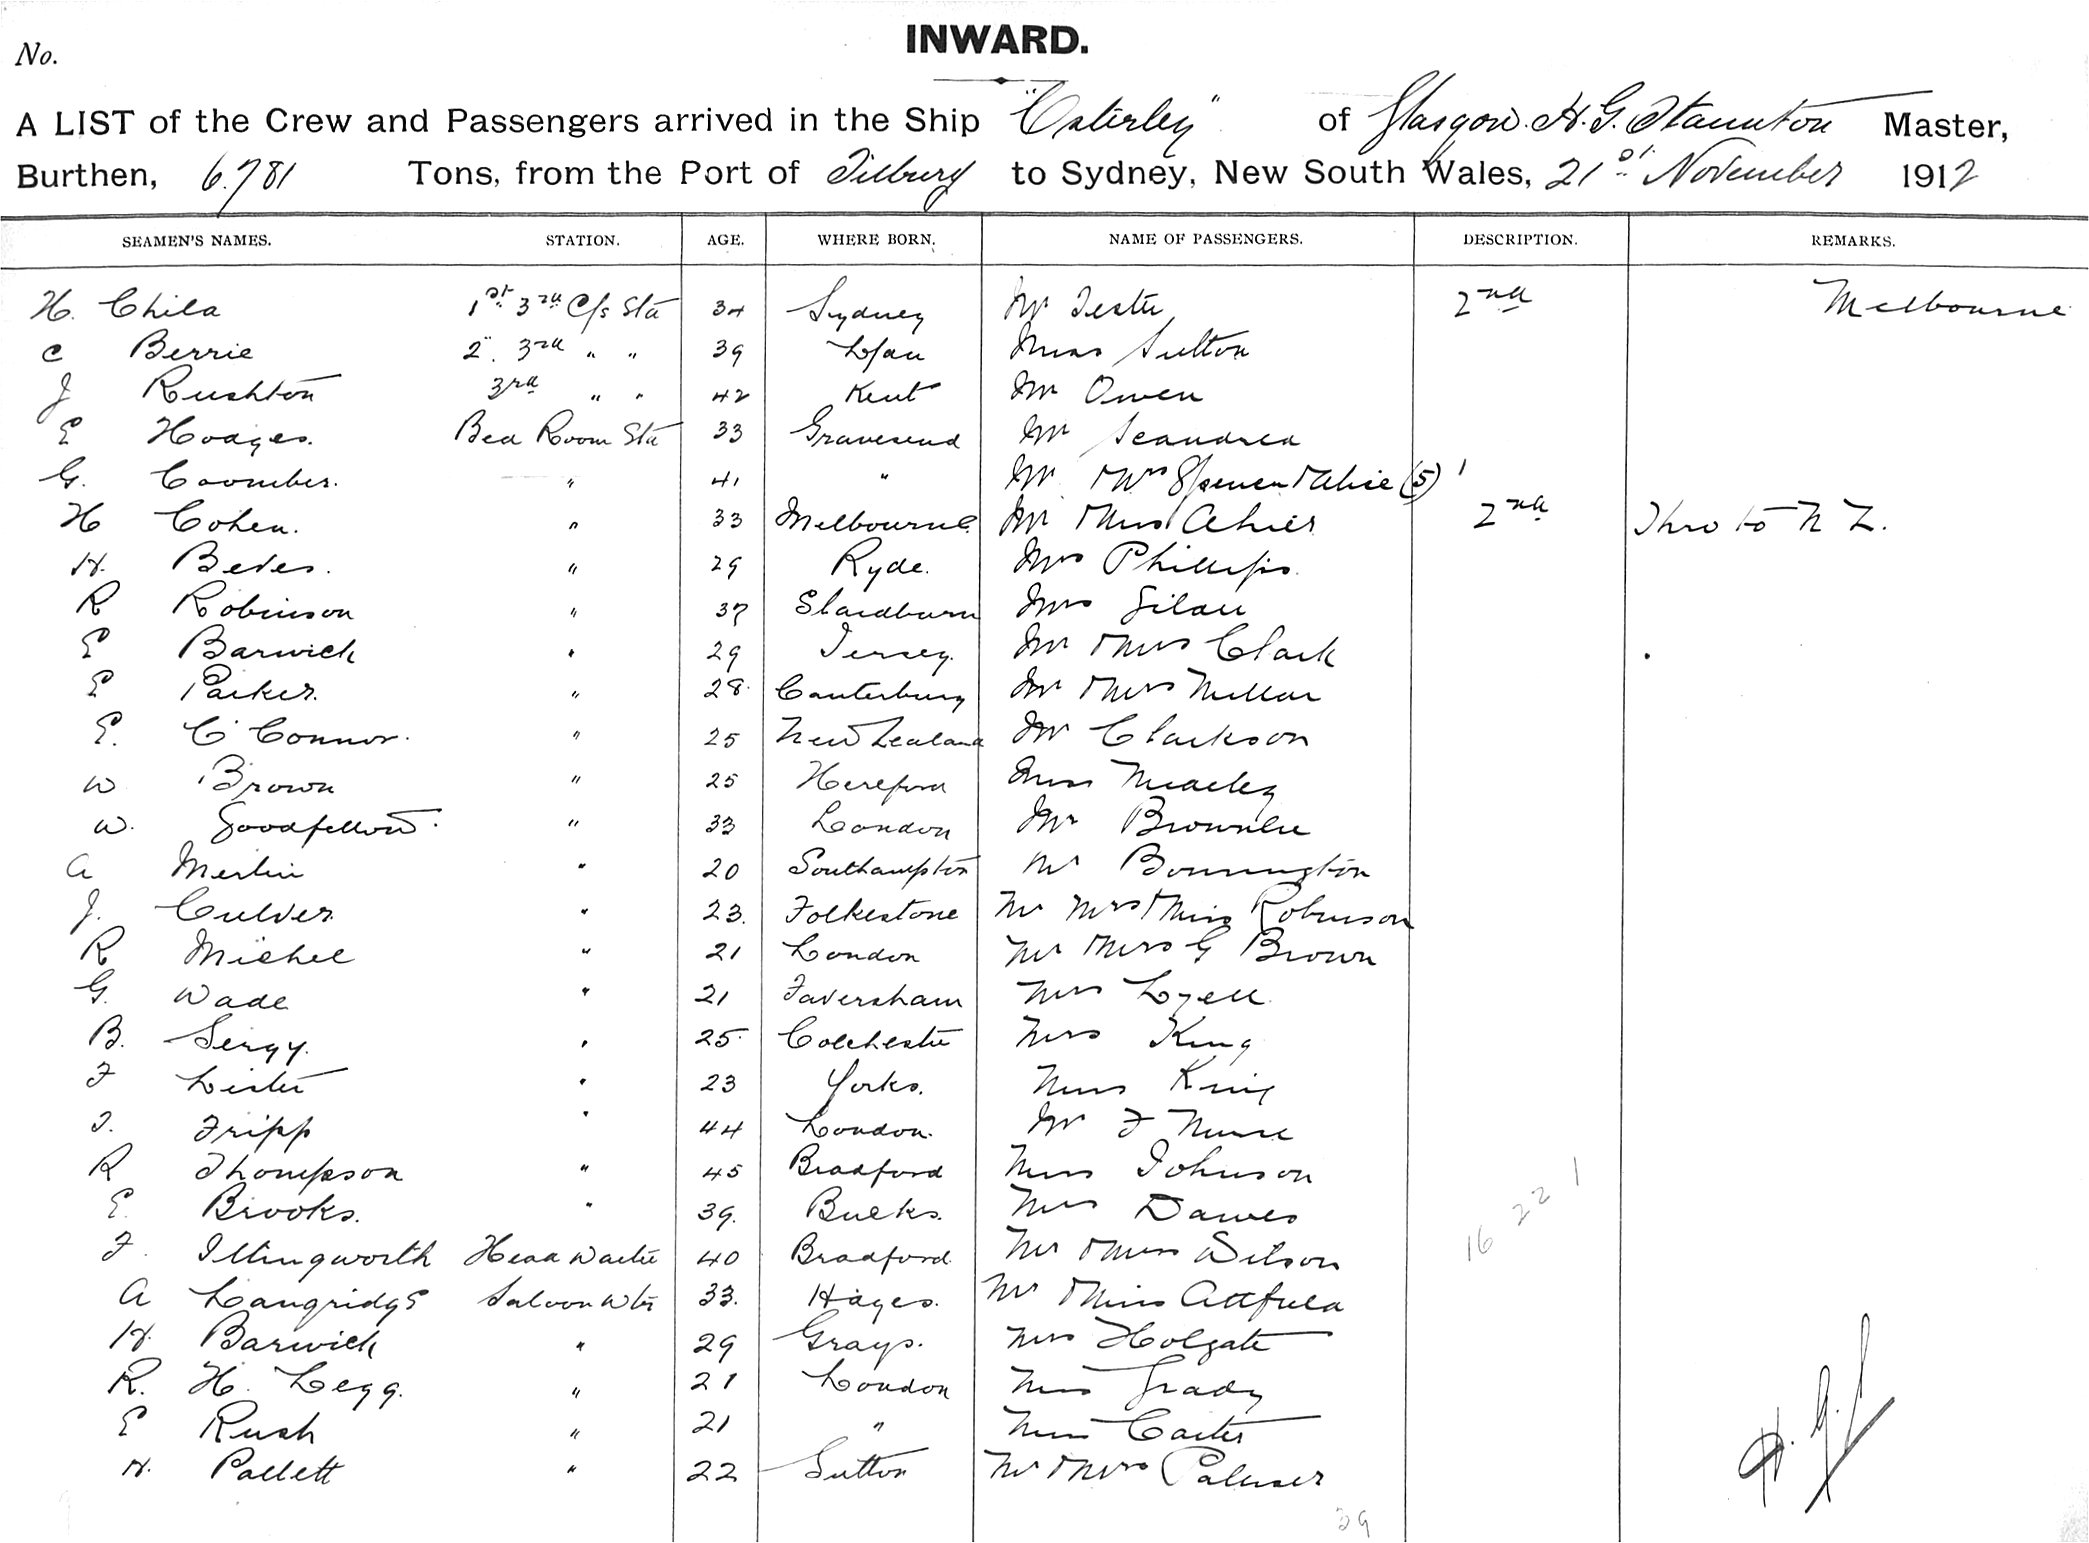 INWARD.
No.
A LIST of the Crew and Passengers arrived in the Ship "Osterley" of Glasgow. H. G. Staunton Master,
Burthen, 6.781 Tons, from the Port of Tilbury to Sydney, New South Wales, 21st November 1912
SEAMEN'S NAMES. STATION. AGE. WHERE BORN. NAME OF PASSENGERS. DESCRIPTION. REMARKS.
H. Child 1st 3rd C/s Std 34 Sydney Mr Tester 2nd Melbourne
C Berrie 2" 3rd " " 39 Miss Sutton
J Rushton 3rd " " 42 Kent Mr Owen
E Hodges. Bed Room Std 33 Gravesend Mr
G. Coomber. " 41 " Mr & Mrs Spencer & Alice (5) 1
H Cohen. " 33 Melbourne. Mr & Miss 2nd Thro to N Z.
H. Beves. " 29 Ryde. Mrs Phillips.
R Robinson " 37 Slaidburn Mrs
E Barwick " 29 Jersey. Mr & Mrs Clark
E Parker. " 28. Canterbury Mr & Mrs Millar
E. O'Connor. " 25 New Zealand Mr Clarkson
W Brown " 25 Hereford Miss
W. Goodfellow. " 33 London Mr Brownlee
A Merlin " 20 Southampton Mr Bonnington
J. Culver. " 23. Folkestone Mr Mrs & Miss Robinson
R Michel " 21 London Mr & Mrs G Brown
G. Wade " 21 Faversham Mrs Lyell
B. Sergy. " 25. Colchester Mrs King
F Lister " 23 Yorks. Miss King
T. Fripp " 44 London. Mr F Nunn
R Thompson " 45 Bradford Miss Johnson
E. Brooks. " 39. Bucks. Mrs Dawes
F. Illingworth Head Waiter 40 Bradford Mr & Miss Wilson
A Langridge Saloon Wtr 33. Hayes. Mr & Miss Attfield
H. Barwick " 29 Grays. Mrs Holgate
R. H. Legg. " 21 London Miss Grady
E Rush " 21 " Miss Carter
H. Pallett " 22 Sutton Mr & Mrs Palmer
16 22 1
39